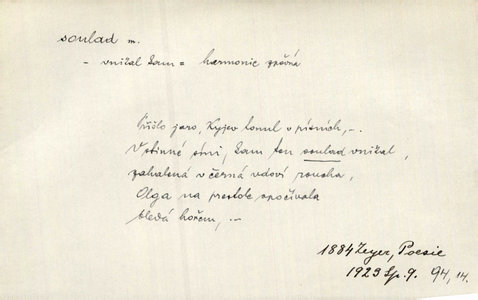 soulad m.
- vnikal tam = harmonie zpěvná
Přišlo jaro, Kyjev tonul v písních, -.
V stinné síni, kam ten soulad vnikal,
zahalená v černá vdoví roucha,
Olga na prestole spočívala
bledá hořem, -
1884 Zeyer, Poesie
1923 Sp. 9. 94, 14.